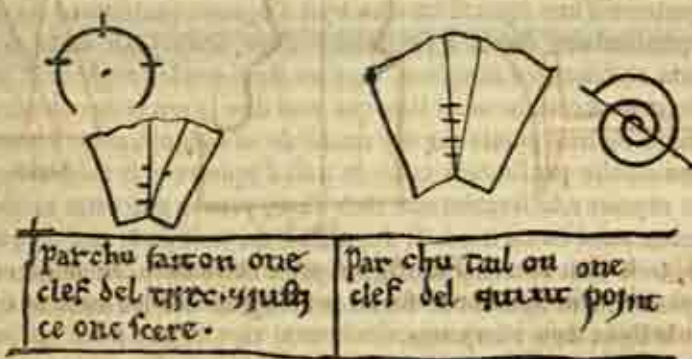 Par chu fait on one
clef del tirc. 7 iusti
ce one scere.
Par chu tail on one
clef del quint point